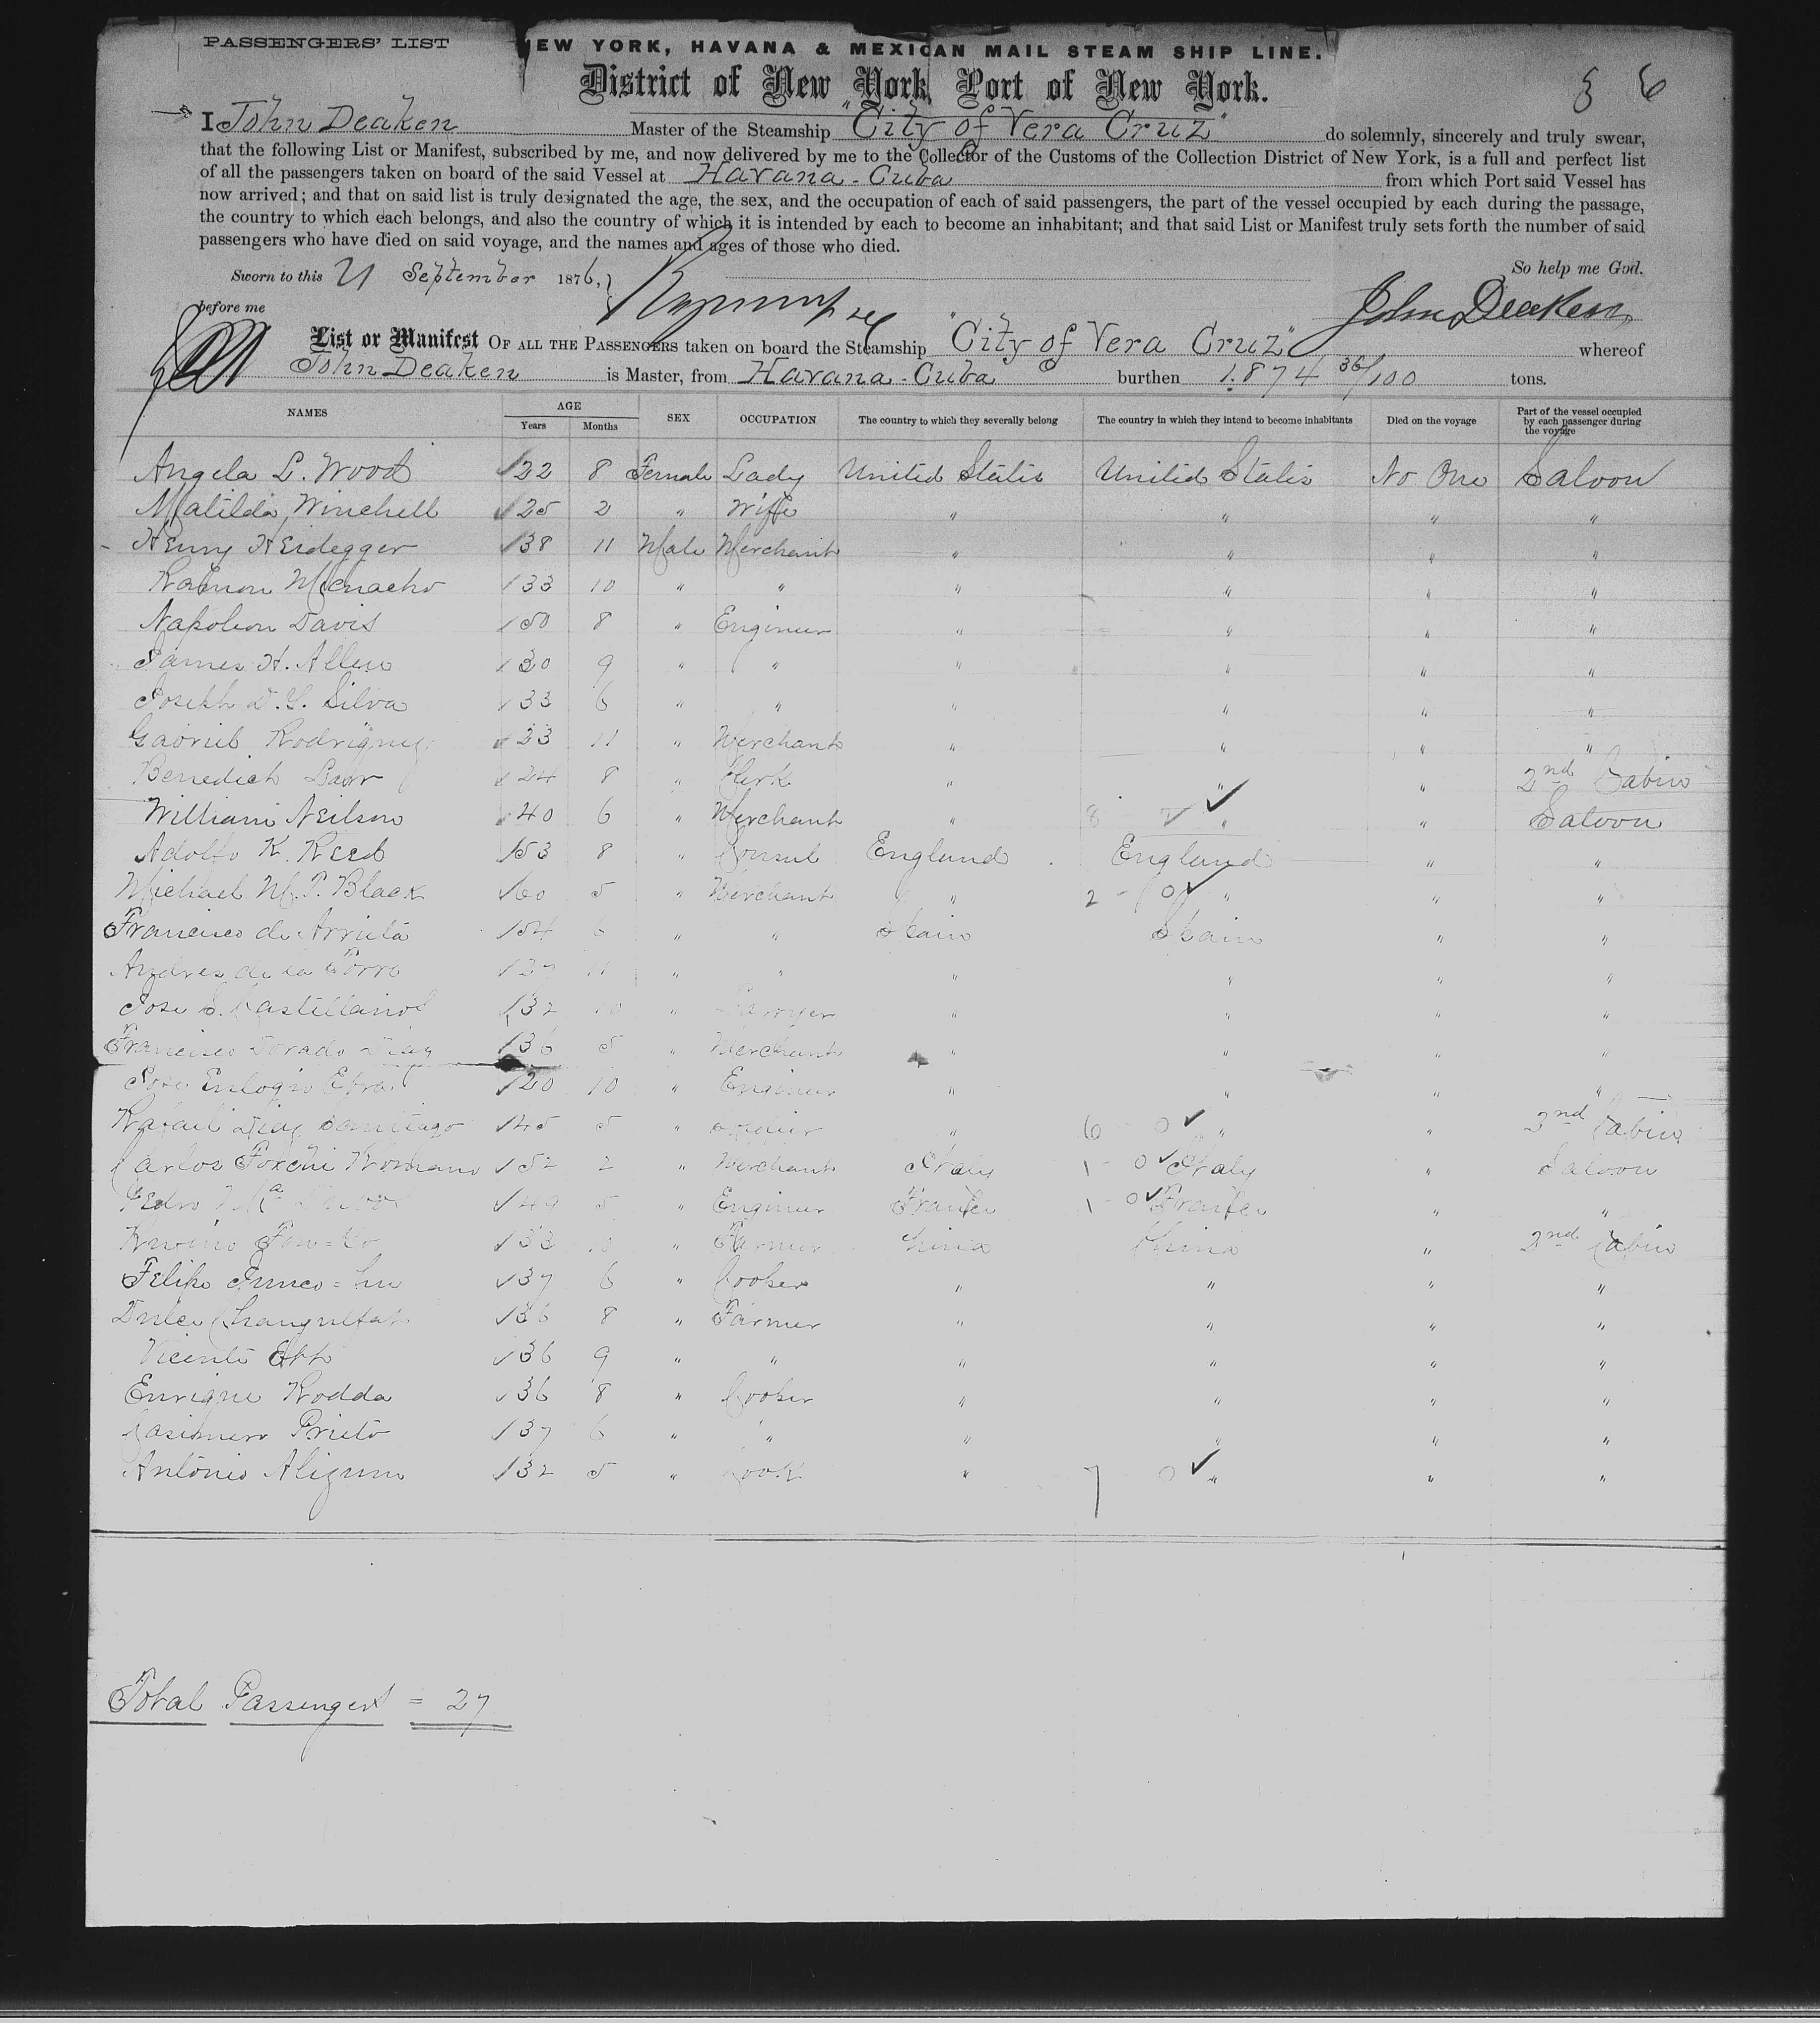 PASSENGERS' LIST
EW YORK, HAVANA & MEXICAN MAIL STEAM SHIP LINE.
District of New York, Port of New York.
6
I John Deaken Master of the Steamship "City of Vera Cruz" do solemnly, sincerely and truly swear,
that the following List or Manifest, subscribed by me, and now delivered by me to the Collector of the Customs of the Collection District of New York, is a full and perfect list
of all the passengers taken on board of the said Vessel at Havana - Cuba from which Port said Vessel has
now arrived; and that on said list is truly designated the age, the sex, and the occupation of each of said passengers, the part of the vessel occupied by each during the passage,
the country to which each belongs, and also the country of which it is intended by each to become an inhabitant; and that said List or Manifest truly sets forth the number of said
passengers who have died on said voyage, and the names and ages of those who died.
So help me God.
Sworn to this 21 September 1876,
before me John Deaken
List or Manifest OF ALL THE PASSENGERS taken on board the Steamship "City of Vera Cruz" whereof
John Deaken is Master, from Havana - Cuba burthen 1.874 36/100 tons.
NAMES AGE Years Months SEX OCCUPATION The country to which they severally belong The country in which they intend to become inhabitants Died on the voyage Part of the vessel occupied by each passenger during the voyage
Angela L. Wood 22 8 Female Lady United States United States No One Saloon
Matilda Winchell 25 2 " Wife " " " "
Henry Heidegger 38 11 Male Merchant " " " "
Ramon Menacho 33 10 " " " " " "
Napoleon Davis 50 8 " Engineer " " " "
James H. Allen 30 9 " " " " " "
Joseph D. G. Silva 33 6 " " " " " "
Gabriel Rodriguez 33 11 " Merchant " " " "
Benedict 24 8 " Clerk " " " 2nd Cabin
William Neilson 40 6 " Merchant " 8 " " Saloon
Adolfo K. Reed 53 8 " Consul England England " "
Michael M. P. Black 60 5 " Merchant " 2 - 0 " " "
Francisco de Arrieta 54 6 " " Spain Spain " "
Andres de la Torre 27 11 " " " " " "
Jose S. Castellanos 32 10 " Lawyer " " " "
Francisco Dorado Diaz 36 5 " Merchant " " " "
Jose Eulogio 20 10 " Engineer " " " "
Rafael Diaz Santiago 45 5 " " 6 0 " " 2nd Cabin
Carlos Romano 52 2 " Merchant Italy 1 - 0 Italy " Saloon
Pedro Ma 49 5 " Engineer France 1 - 0 France " "
33 10 " Farmer China China " 2nd Cabin
Felipe 37 6 " Cooker " " " "
36 8 " Farmer " " " "
Vicente 36 9 " " " " " "
Enrique Rodda 36 8 " Cooker " " " "
Casimero Prieto 37 6 " " " " " "
Antonio 32 5 " Cook " 7 0 " " "
Total Passengers = 27